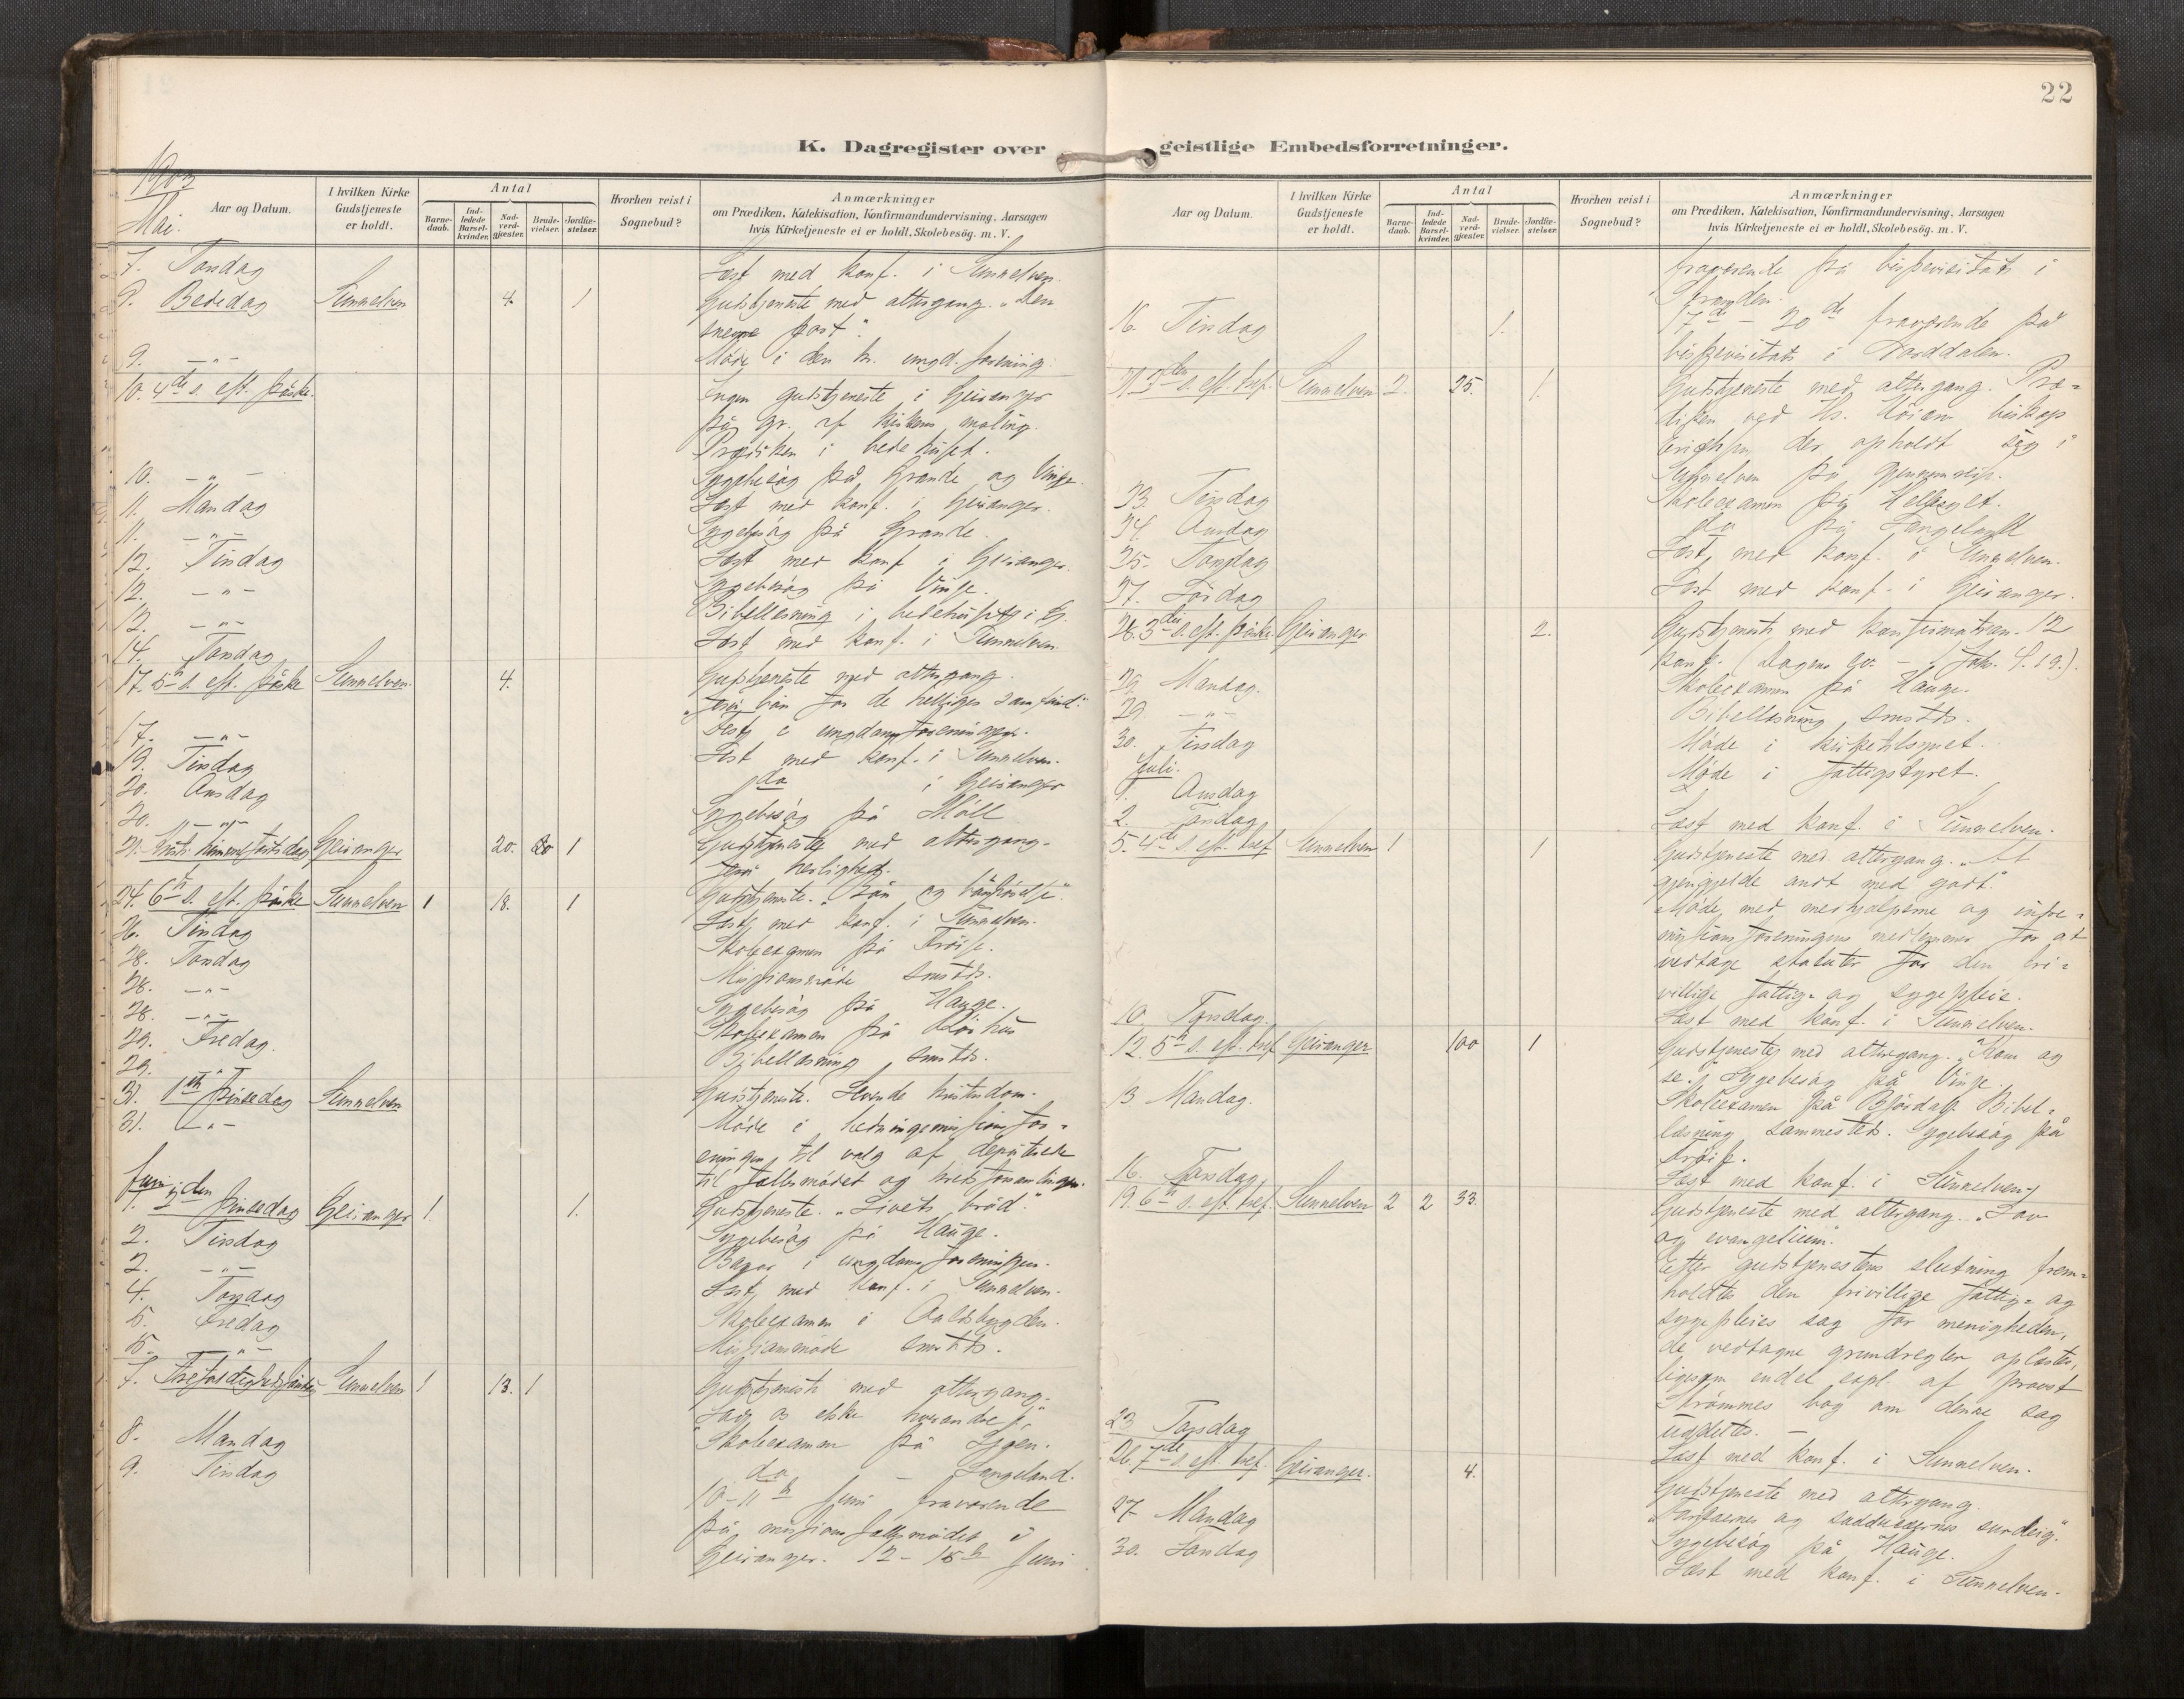 22
K. Dagregister over geistlige Embedsforretninger.
1903
Mai.
Aar og Datum.
I hvilken Kirke Gudstjeneste er holdt.
Antal
Barne-daab.
Ind-ledede Barsel-kvinder.
Nad-verd-gjæster.
Brude-vielser.
Jordfæ-stelser.
Hvorhen reist i Sognebud?
Anmærkninger
om Prædiken, Katekisation, Konfirmandundervisning, Aarsagen
hvis Kirketjeneste ei er holdt, Skolebesög. m. V.
7. Torsdag Læst med konf. i Sunnelven.
8. Bededag Sunnelven 4. 1 Gudstjeneste med altergang. „Den
port".
9. —„— Möde i den kr. ungd. forening.
10. 4de s. eft. påske. Ingen gudstjeneste i Geiranger
på gr. af kirkens maling.
Prædiken i bedehuset.
10. —„— Sygebesög på Grande og Vinje.
11. Mandag Læst med konf. i Geiranger.
11. —„— Sygebesög på Grande.
12. Tirsdag Læst med konf. i Geiranger.
12. —„— Sygebesög på Vinje.
12. —„— Bibellæsning i bedehuset i G.
14. Torsdag Læst med konf. i Sunnelven.
17. 5te s. eft. påske Sunnelven. 4. Gudstjeneste med altergang.
„Jesu bön for de helliges samfund."
17. —„— Fest i ungdomsforeningen.
19. Tirsdag Læst med konf. i Sunnelven.
20. Onsdag do i Geiranger
20. —„— Sygebesög på Möll
21. Kristi himmelfartsdag Geiranger 20. 1 Gudstjeneste med altergang.
Jesu herlighed.
24. 6te s. eft. påske Sunnelven 1 18. 1 Gudstjeneste. „Bön og bönhörelse".
26. Tirsdag Læst med konf. i Sunnelven.
28. Torsdag Skoleexamen på Tröise.
28. —„— Missionsmöde smstds.
28. —„— Sygebesög på Hauge.
29. Fredag. Skoleexamen på
29. —„— Bibellæsning smstds.
31. 1ste pinsedag Sunnelven Gudstjeneste. Levende kristendom.
31. —„— Möde i hedningemissionsfor-
eningen til valg af deputerede
til fællesmödet og kredsforsamlingen.
Juni
1. 2den pinsedag Geiranger 1. 1. Gudstjeneste. „Livets bröd."
2. Tirsdag Sygebesög på Hauge.
2. —„— Bazar i ungdomsforeningen.
4. Torsdag Læst med konf. i Sunnelven.
5. Fredag Skoleexamen i
5. —„— Missionsmöde smstds.
7. Trefoldighedssöndag Sunnelven 1 13. 1 Gudstjeneste med altergang.
Lad os elske hverandre!"
8. Mandag Skoleexamen på Lygen.
9. Tirsdag do — Langeland.
10–11te Juni fraværende
på missionsfællesmödet i
Geiranger. 12–15te Juni
Aar og Datum.
I hvilken Kirke Gudstjeneste er holdt.
Antal
Barne-daab.
Ind-ledede Barsel-kvinder.
Nad-verd-gjæster.
Brude-vielser.
Jordfæ-stelser.
Hvorhen reist i Sognebud?
Anmærkninger
om Prædiken, Katekisation, Konfirmandundervisning, Aarsagen
hvis Kirketjeneste ei er holdt, Skolebesög. m. V.
fraværende på bispevisitats i
Stranden.
16. Tirsdag 1. 17de – 20de fraværende på
bispevisitats i Norddalen.
21. 2den s. eft. tref. Sunnelven 2. 25. 1. Gudstjeneste med altergang. Præ-
diken ved Hs. Höiærv. biskop
Erichsen, der opholdt sig i
Sunnelven på gjennemreise.
23. Tirsdag Skoleexamen på Hellesylt.
24. Onsdag do på Langeland
25. Torsdag Læst med konf. i Sunnelven.
27. Lördag Læst med konf. i Geiranger.
28. 3die s. eft. påske. Geiranger 2. Gudstjeneste med konfirmation. 12
konf. (Dagens ev. – 1 Joh. 4.19.).
29. Mandag. Skoleexamen på Hauge.
29. —„— Bibellæsning smstds.
30. Tirsdag Möde i kirketilsynet.
Juli.
1. Onsdag Möde i fattigstyret.
2. Torsdag Læst med konf. i Sunnelven.
5. 4de s. eft. tref Sunnelven 1 1 Gudstjeneste med altergang. „At
gjengjelde ondt med godt."
Möde med medhjælperne og indre-
missionsforeningens medlemmer for at
vedtage statuter for den fri-
villige fattig- og sygepleie.
10. Torsdag. Læst med konf. i Sunnelven.
12. 5te s. eft. tref Geiranger 100 1 Gudstjeneste med altergang. „Kom og
se." Sygebesög på Vinje.
13 Mandag. Skoleexamen på Björdal. Bibel-
læsning sammesteds. Sygebesög på
Tröise.
16. Torsdag Læst med konf. i Sunnelven.
19. 6te s. eft. tref. Sunnelven 2 2 33. Gudstjeneste med altergang. „Lov
og evangelium."
Efter gudstjenestens slutning frem-
holdtes den frivillige fattig- og
sygepleies sag for menigheden,
de vedtagne grundregler oplæstes,
ligesom endel expl. af provst
Strömmes bog om denne sag
uddeltes. —
23 Torsdag Læst med konf. i Sunnelven.
26. 7de s. eft. tref. Geiranger. 4. Gudstjeneste med altergang.
„Farisæernes og sadducæernes surdeig."
27. Mandag Sygebesög på Hauge.
30. Torsdag Læst med konf. i Sunnelven.